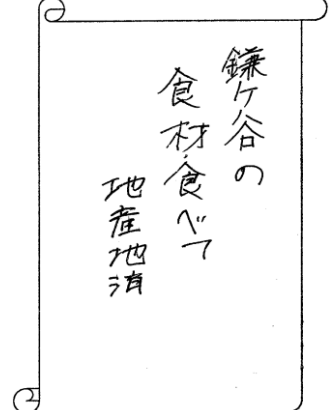 鎌ケ谷の
食材食べて
地産地消